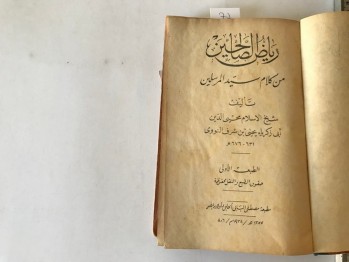 رياض الصالحين
من كلام سيد المرسلين
تأليف
شيخ الإسلام محيي الدين
أبي زكريا يحيى بن شرف النووي
٦٣١ - ٦٧٦ هـ
الطبعة الأولى
حقوق الطبع والنقل محفوظة